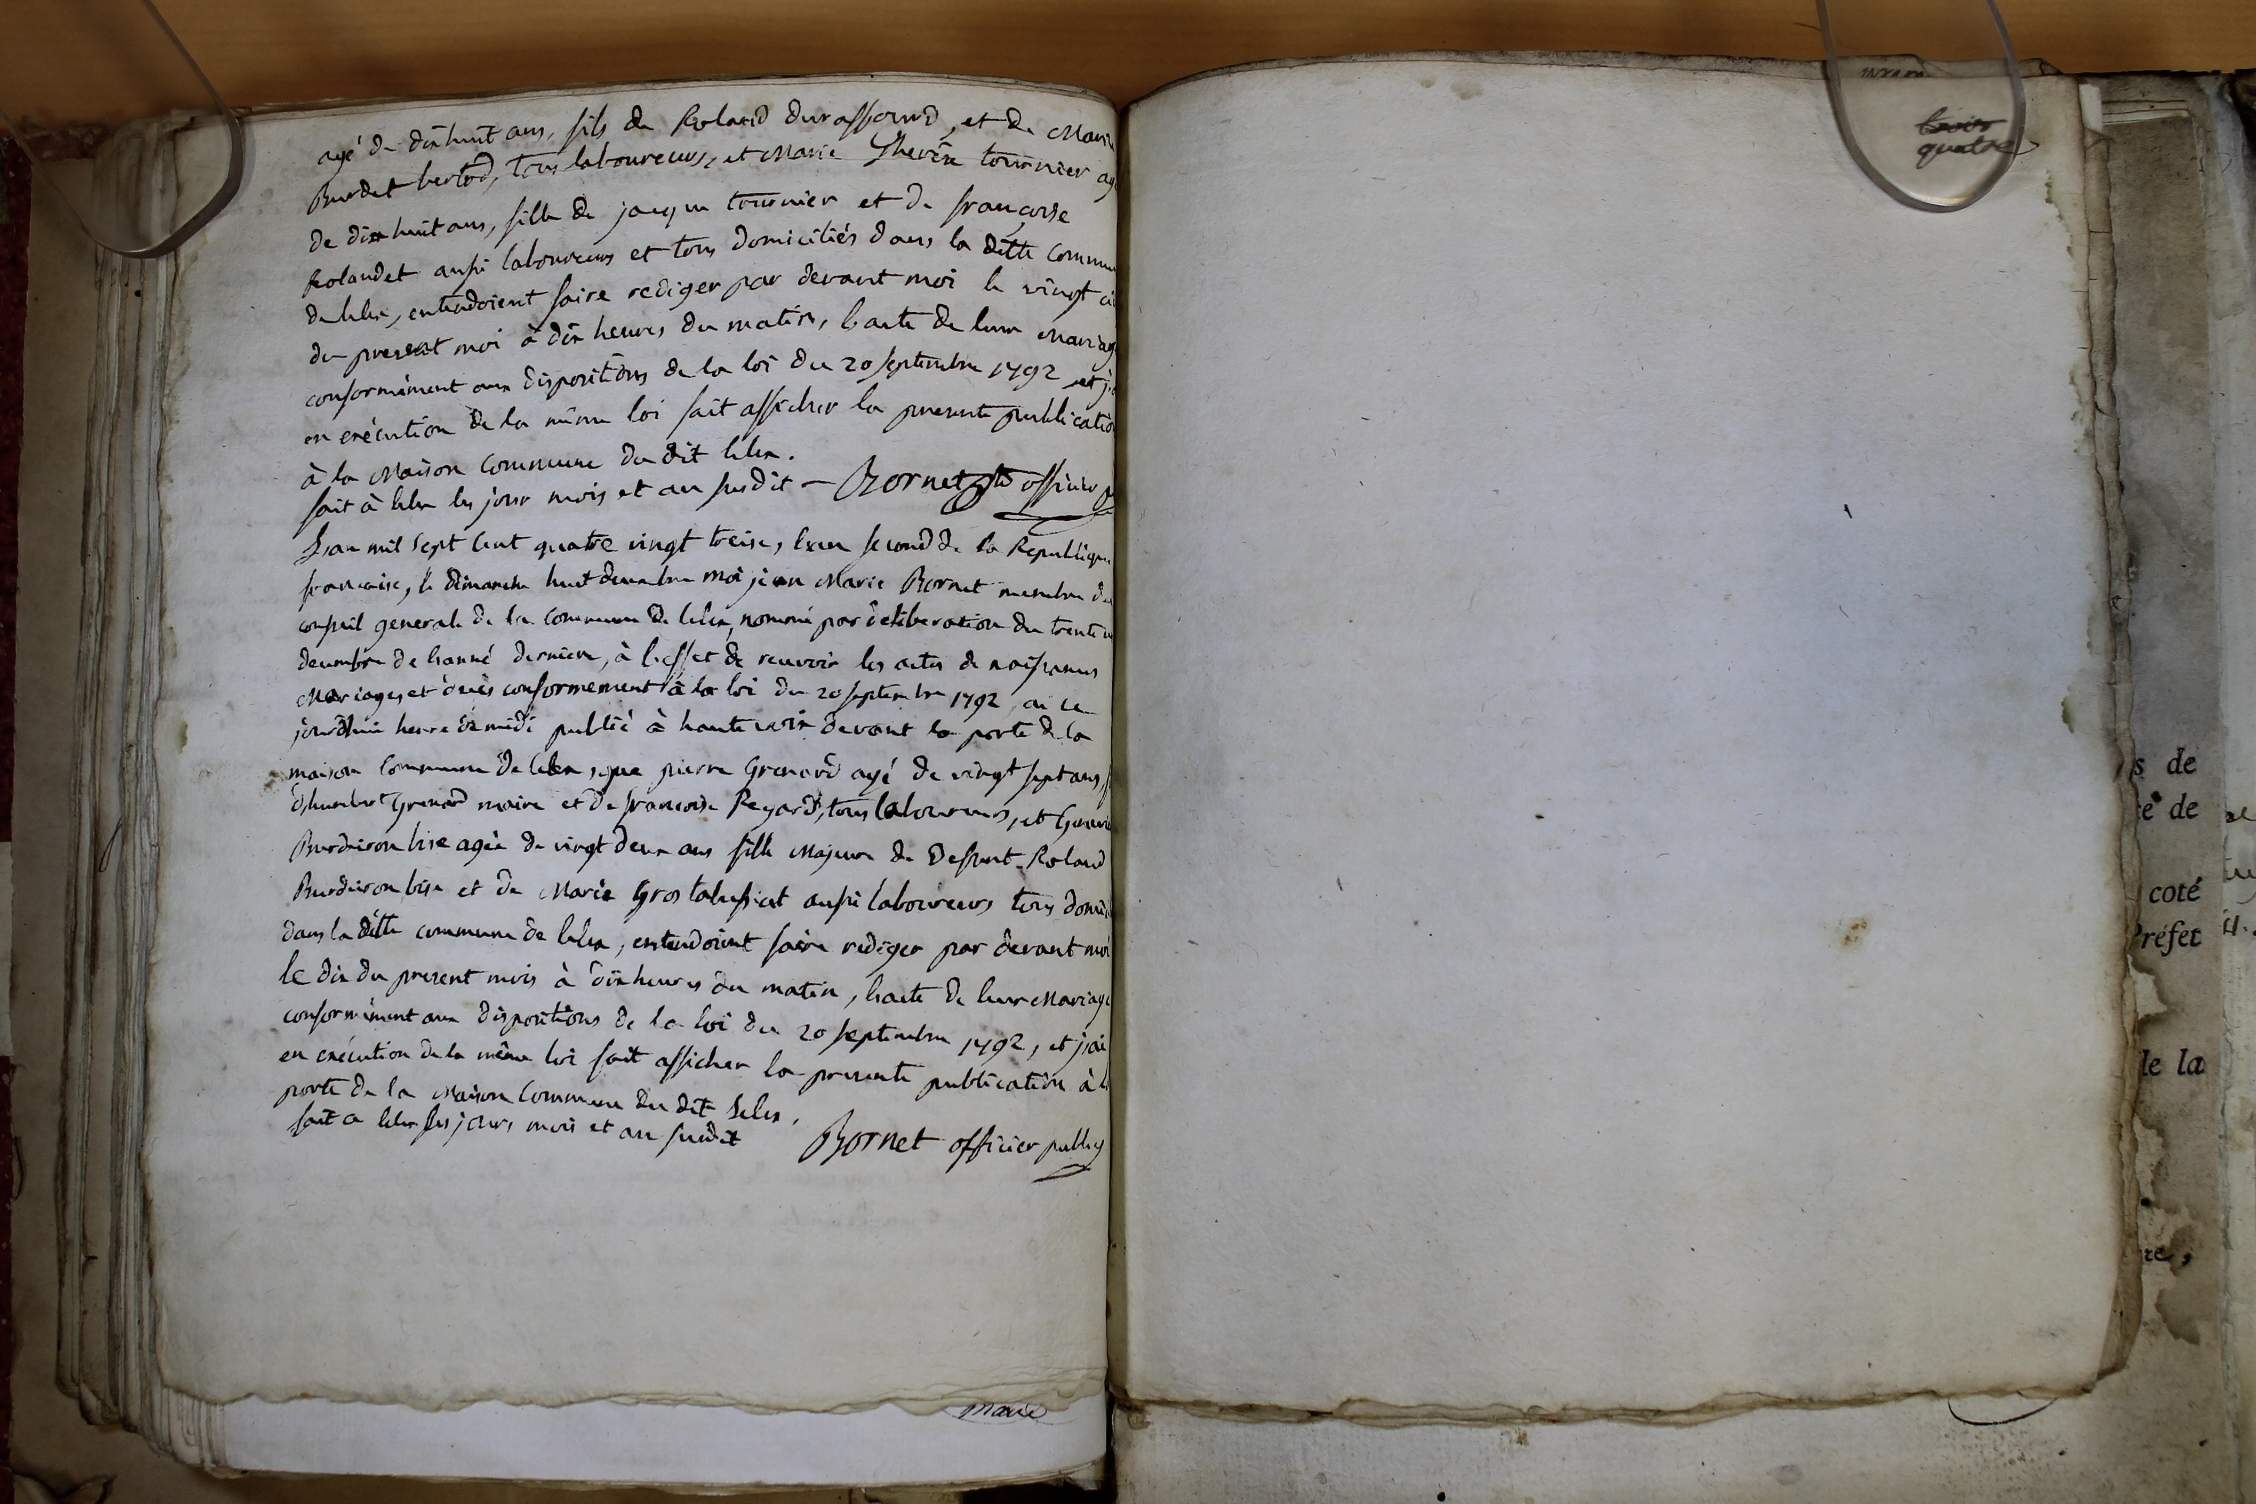 agé de dix huit ans, fils de Roland durafourd, et de Marie
Burdet bertod, tous laboureurs, et Marie Therèse tournier ag
de dix huit ans, fille de jacque tournier et de françoise
Rolandet aussi laboureurs et tous domiciliés dans la ditte commu
de lelex, entendoient faire rediger par devant moi le vingt
du present moi à dix heures du matin, l'acte de leur Mariag
conformément aux dispositions de la loi du 20 septembre 1792 et j'
en exécution de la même loi fait afficher la presente publicatio
à la Maison Commune du dit lelex.
fait à lelex les jour mois et an susdit - Bornet officier
L'an mil sept cent quatre vingt treise, l'an second de la Republique
francaise, le dimanche huit decembre moi jean Marie Bornet membre d
conseil general de la commune de lelex, nommé par déliberation du trente
decembre de l'anné derniere, à l'effet de recevoir les actes de naissances
Mariages et décès conformement à la loi du 20 septembre 1792, ai ce
jourdhui heure de midi publié à haute voix devant la porte de la
maison Commune de lelex, que pierre Grenard agé de vingt sept ans, f
d'humbert Grenard maire et de francoise Regard, tous laboureurs, et
Burdeiron bise agée de vingt deux ans fille Majeure de Defunt Roland
Burdeiron bise et de Marie Gros aussi laboureurs tous domici
dans la ditte commune de lelex, entendoient faire rediger par devant moi
le dix du present mois à dix heures du matin, l'acte de leur Mariage
conformément aux dispositions de la loi du 20 septembre 1792, et j'ai
en exécution de la même loi fait afficher la presente publication à l
porte de la Maison Commune du dit lelex,
fait a lelex les jours mois et an susdit Bornet officier public
marie
trois
quatre
s de
e de
coté
Préfet
de la
re,